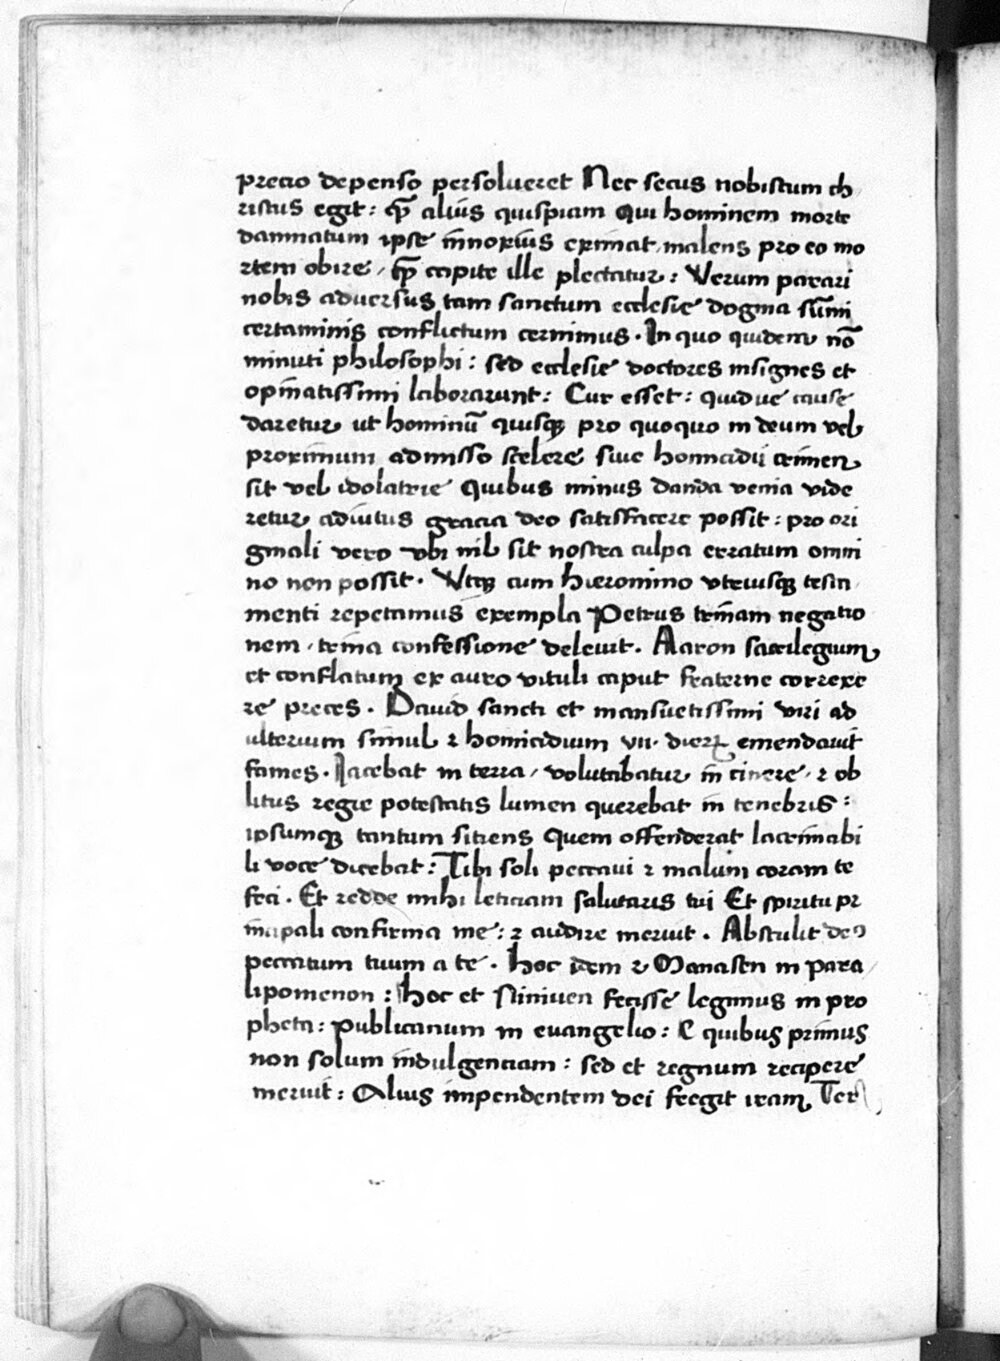 precio depenso persolueret Nec secus nobiscum ch
ristus egit: qͫ alius quispiam qui hominem morte
damnatum ipse innoxius eximat, malens pro eo mo
rtem obire, qͫ capite ille plectatur: Verum parari
nobis aduersus tam sanctum ecclesie dogma sūmi
certaminis conflictum cernimus. In quo quidem nō
minuti philosophi: sed ecclesie doctores insignes et
opīnatissimi laborarunt: Cur esset: quid ue cause
daretur ut hominū quisqꝫ pro quoquo in deum vel
proximum admisso scelere siue homicidii crimen
sit vel idolatrie Quibus minus danda venia vide
retur adiutus gracia deo satisfacere possit: pro ori
ginali vero vbi nil sit nostra culpa erratum omni
no non possit. Vtqꝫ cum hieronimo vtriusqꝫ testa
menti repetamus exempla Petrus trīnam negatio
nem, trina confessione deleuit. Aaron sacrilegium
et conflatum ex auro vituli caput fraterne correxe
re preces. Dauid sancti et mansuetissimi viri ad
ulterium simul ⁊ homicidium vii. dieꝝ emendauit
fames. Iacebat in terra, volutabatur in cinere, ⁊ ob
litus regie potestatis lumen querebat in tenebris:
ipsumqꝫ tantum sitiens quem offenderat lacrimabi
li voce dicebat: Tibi soli peccaui ⁊ malum coram te
feci. Et redde mihi leticiam salutaris tui Et spiritu pr
incipali confirma me: ⁊ audire meruit. Abstulit deꝰ
peccatum tuum a te. Hoc idem ⁊ Manasen in para
lipomenon: Hoc et Niniuen fecisse legimus in pro
pheta: publicanum in euangelio: E quibus primus
non solum indulgenciam: sed et regnum recipere
meruit: Alius impendentem dei fregit iram, Ter